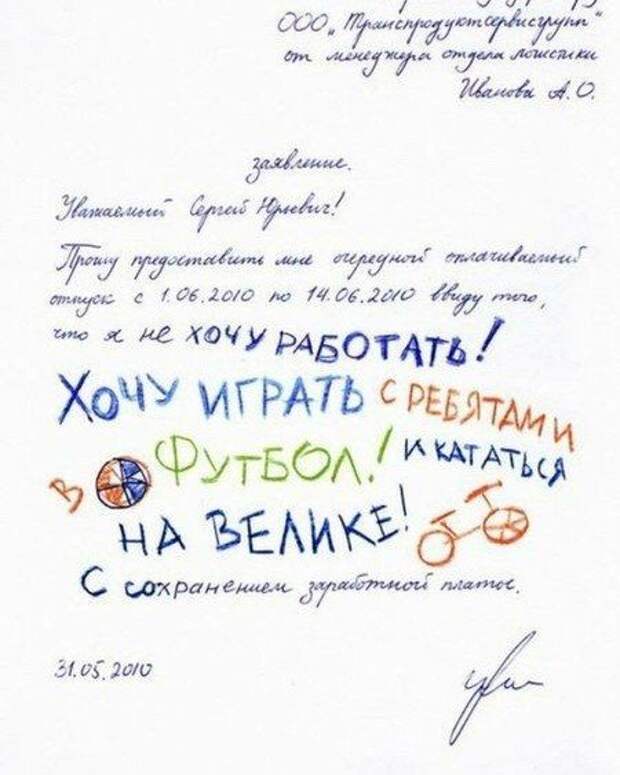 ООО „Транспродуктсервисгрупп"
от менеджера отдела логистики
Иванова А.О.
заявление.
Уважаемый Сергей Юрьевич!
Прошу предоставить мне очередной оплачиваемый
отпуск с 1.06.2010 по 14.06.2010 ввиду того,
что я не хочу РАБОТАТЬ!
ХОЧУ ИГРАТЬ С РЕБЯТАМИ
В ФУТБОЛ! И КАТАТЬСЯ
НА ВЕЛИКЕ!
С сохранением заработной платы.
31.05.2010